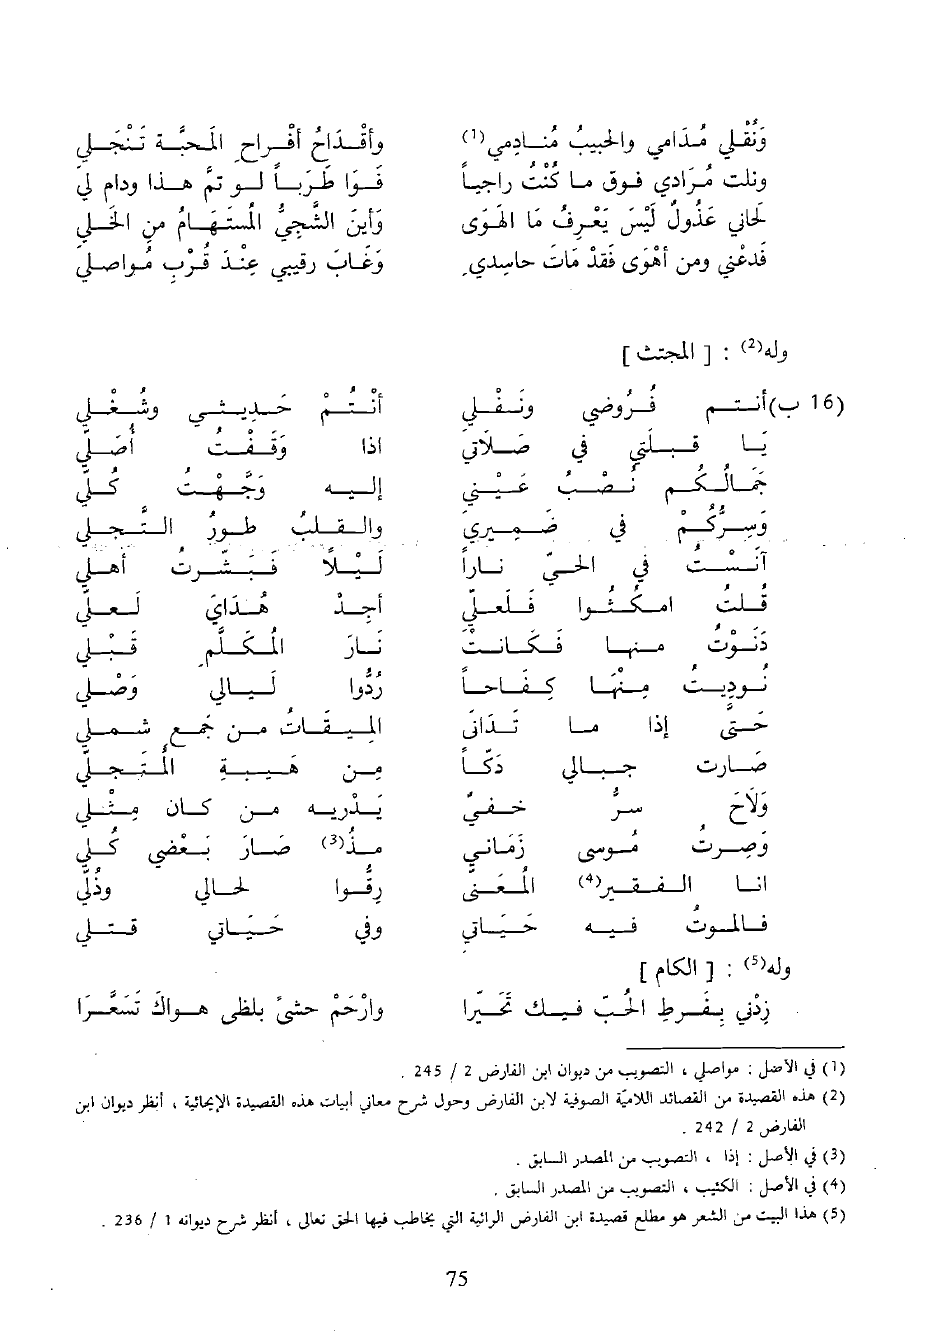 وَنُقْلي مُدَامي والحَبِيبُ مُنَادِمي(1) وأقْدَاحُ أفْراحِ المَحَبَّةِ تَنْجَلي
ونلت مُرادي فوقَ ما كُنْتُ راجياً فَوَا طَرَبَاً لو تمَّ هذا ودام لي
لَحَاني عَذُولٌ لَيْسَ يَعْرِفُ مَا الهَوَى وَأينَ الشَّجِيُّ المُسْتَهَامُ من الخَلي
فَدَعْني ومن أهْوَى فَقَدْ مَاتَ حَاسِدي وَغَابَ رقيبي عِنْدَ قُرْبِ مُواصلي
وله(2) : [ المجتث ]
(16 ب) أنتم فُرُوضي ونَفْلي أنْتُم حَديثي وشُغْلي
يَا قبلتي في صَلاتي اذا وَقَفْتُ أُصَلِّي
جَمَالُكُم نُصْبُ عَيْني إليه وَجَّهْتُ كُلِّي
وَسِرُّكُمْ في ضَميري والقلبُ طورُ التَّجلي
آنَسْتُ في الحَيّ نَاراً لَيْلاً فَبَشَّرتُ أهْلي
قُلتُ امكُثُوا فَلعلي أجِدْ هُدَايَ لَعلي
دَنَوْتُ منها فَكانتْ نَارَ المُكَلَّمِ قَبْلي
نُوديتُ مِنْهَا كِفَاحاً رُدُّوا لَيَالي وَصْلي
حَتى إذا ما تَدَانَى الميقاتُ من جَمعِ شملي
صَارت جبالي دَكّاً مِن هَيبةِ المُتَجلِّي
وَلَاحَ سرٌّ خَفيٌّ يَدْريه من كَان مِثْلي
وَصِرتُ مُوسى زَمَاني مذ(3) صَارَ بَعْضي كُلي
انا الفقير(4) المُعَنى رِقُّوا لحَالي وذُلِّي
فالموتُ فيه حَيَاتي وفي حَيَاتي قتلي
وله(5) : [ الكام ]
زِدْني بِفَرطِ الحُبِّ فيك تَحَيُّرا وارْحَمْ حشىً بِلَظَى هواكَ تَسَعَّرَا
(1) في الأصل : مواصلي ، التصويب من ديوان ابن الفارض 2 / 245 .
(2) هذه القصيدة من القصائد اللاميّة الصوفية لابن الفارض وحول شرح معاني أبيات هذه القصيدة الإيحائية ، أنظر ديوان ابن
الفارض 2 / 242 .
(3) في الأصل : إذا ، التصويب من المصدر السابق .
(4) في الأصل : الكئيب ، التصويب من المصدر السابق .
(5) هذا البيت من الشعر هو مطلع قصيدة ابن الفارض الرائية التي يخاطب فيها الحق تعالى ، أنظر شرح ديوانه 1 / 236 .
75